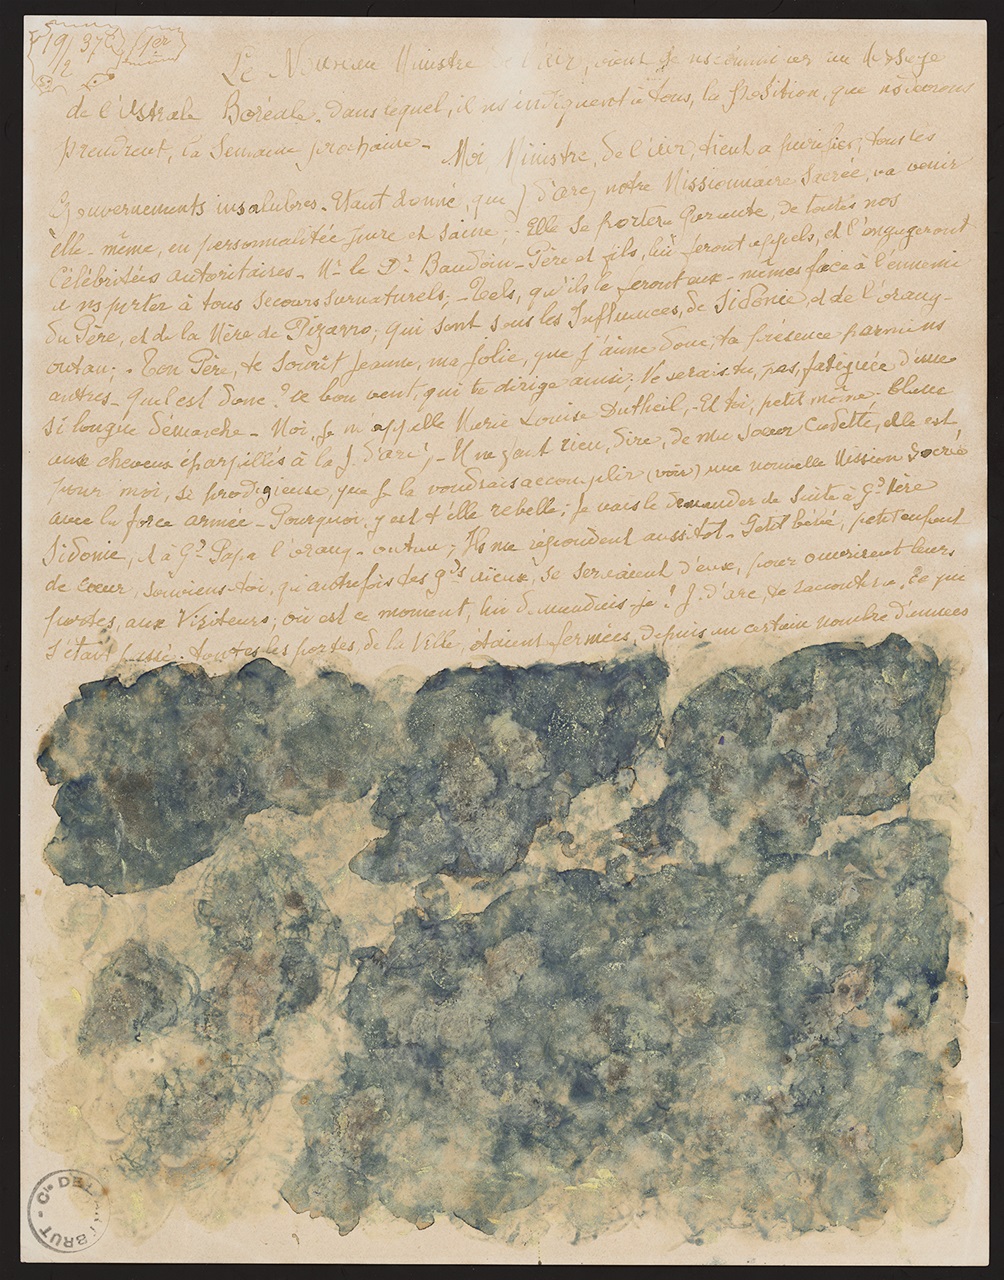 19/37 1er
2
Le Nouveau Ministre de l'air, vient de ns communiquer un message
de l'Astrale Boréale. Dans lequel, il ns indiquent à tous, la position, que nous devons
prendrent, la Semaine prochaine - Moi, Ministre, de l'air, tient a purifier, tous les
Gouvernements insalubres. Etant donné, que J d'arc, notre Missionnaire Sacrée, va venir
elle-même, en personnalitée pure et saine; - Elle se portera Garante, de toutes nos
Célébritées autoritaires - Mr le Dr Baudoin - Père et fils, lui feront appels, et l'engageront
a ns porter à tous secours surnaturels; - Tels, qu'ils le feront eux-mêmes face à l'ennemi
du Père, et de la Mère de Pizarro, qui sont sous les Influences, de Sidonie, et de l'orang-
outan; - Ton Père, te Sourit Jeanne, ma folie, que j'aime donc, ta présence parmi ns
autres - Quel est donc? ce bon vent, qui te dirige ainsi. Ne serais tu, pas, fatiguée d'une
si longue démarche - Moi, je m'appelle Marie Louise Dutheil, - Et toi, petit moine blanc
aux cheveux éparpillés à la J. d'arc; - Il ne faut rien, dire, de ma soeur Cadette, elle est
pour moi, si prodigieuse, que je la voudrais accomplir (voir) une nouvelle Mission Sacrée
avec la force armée - Pourquoi, y est t'elle rebelle; je vais le demander de suite à Gd Père
Sidonie, et à Gd Papa l'orang-outan; Ils me répondent aussitot - Petit bébé, petit enfant
de coeur, souviens-toi, qu'autrefois tes gds vieux, se servaient d'eux, pour ouvrirent leurs
portes, aux Visiteurs; où est ce moment, lui demandais-je? J. d'arc, te racontera, ce que
s'était passé. toutes les portes, de la Ville, étaient fermées, depuis un certain nombre d'années
Cie DE L'ART BRUT